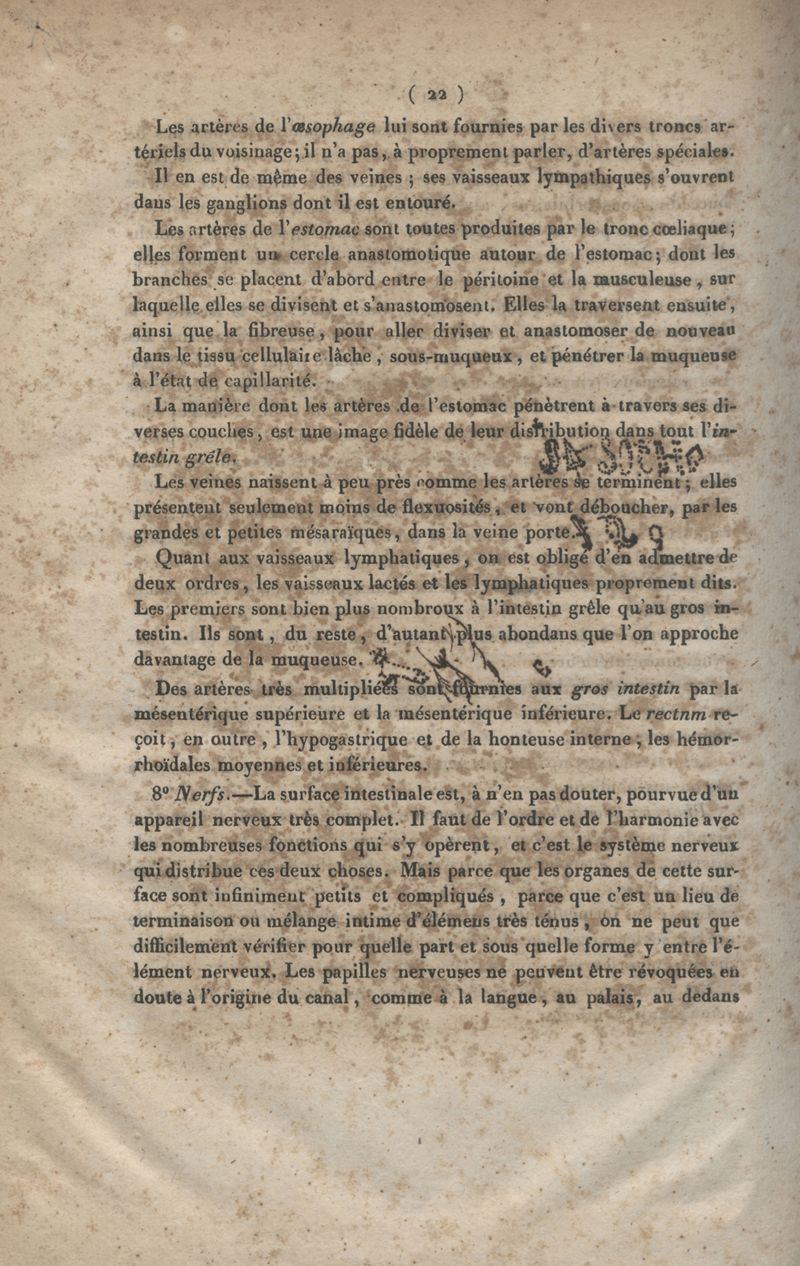 ( 22 )
Les artères de l'œsophage lui sont fournies par les divers troncs ar-
tériels du voisinage; il n'a pas, à proprement parler, d'artères spéciales.
Il en est de même des veines ; ses vaisseaux lympathiques s'ouvrent
dans les ganglions dont il est entouré.
Les artères de l'estomac sont toutes produites par le tronc cœliaque;
elles forment un cercle anastomotique autour de l'estomac; dont les
branches se placent d'abord entre le péritoine et la musculeuse, sur
laquelle elles se divisent et s'anastomosent. Elles la traversent ensuite,
ainsi que la fibreuse, pour aller diviser et anastomoser de nouveau
dans le tissu cellulaire lâche, sous-muqueux, et pénétrer la muqueuse
à l'état de capillarité.
La manière dont les artères de l'estomac pénètrent à travers ses di-
verses couches, est une image fidèle de leur distribution dans tout l'in-
testin grêle.
Les veines naissent à peu près comme les artères se terminent; elles
présentent seulement moins de flexuosités, et vont déboucher, par les
grandes et petites mésaraïques, dans la veine porte.
Quant aux vaisseaux lymphatiques, on est obligé d'en admettre de
deux ordres, les vaisseaux lactés et les lymphatiques proprement dits.
Les premiers sont bien plus nombroux à l'intestin grêle qu'au gros in-
testin. Ils sont, du reste, d'autant plus abondans que l'on approche
davantage de la muqueuse.
Des artères très multipliées sont fournies aux gros intestin par la
mésentérique supérieure et la mésentérique inférieure. Le rectnm re-
çoit, en outre, l'hypogastrique et de la honteuse interne, les hémor-
rhoïdales moyennes et inférieures.
8° Nerfs.—La surface intestinale est, à n'en pas douter, pourvue d'un
appareil nerveux très complet. Il faut de l'ordre et de l'harmonie avec
les nombreuses fonctions qui s'y opèrent, et c'est le système nerveux
qui distribue ces deux choses. Mais parce que les organes de cette sur-
face sont infiniment petits et compliqués, parce que c'est un lieu de
terminaison ou mélange intime d'élémens très ténus, on ne peut que
difficilement vérifier pour quelle part et sous quelle forme y entre l'é-
lément nerveux. Les papilles nerveuses ne peuvent être révoquées en
doute à l'origine du canal, comme à la langue, au palais, au dedans